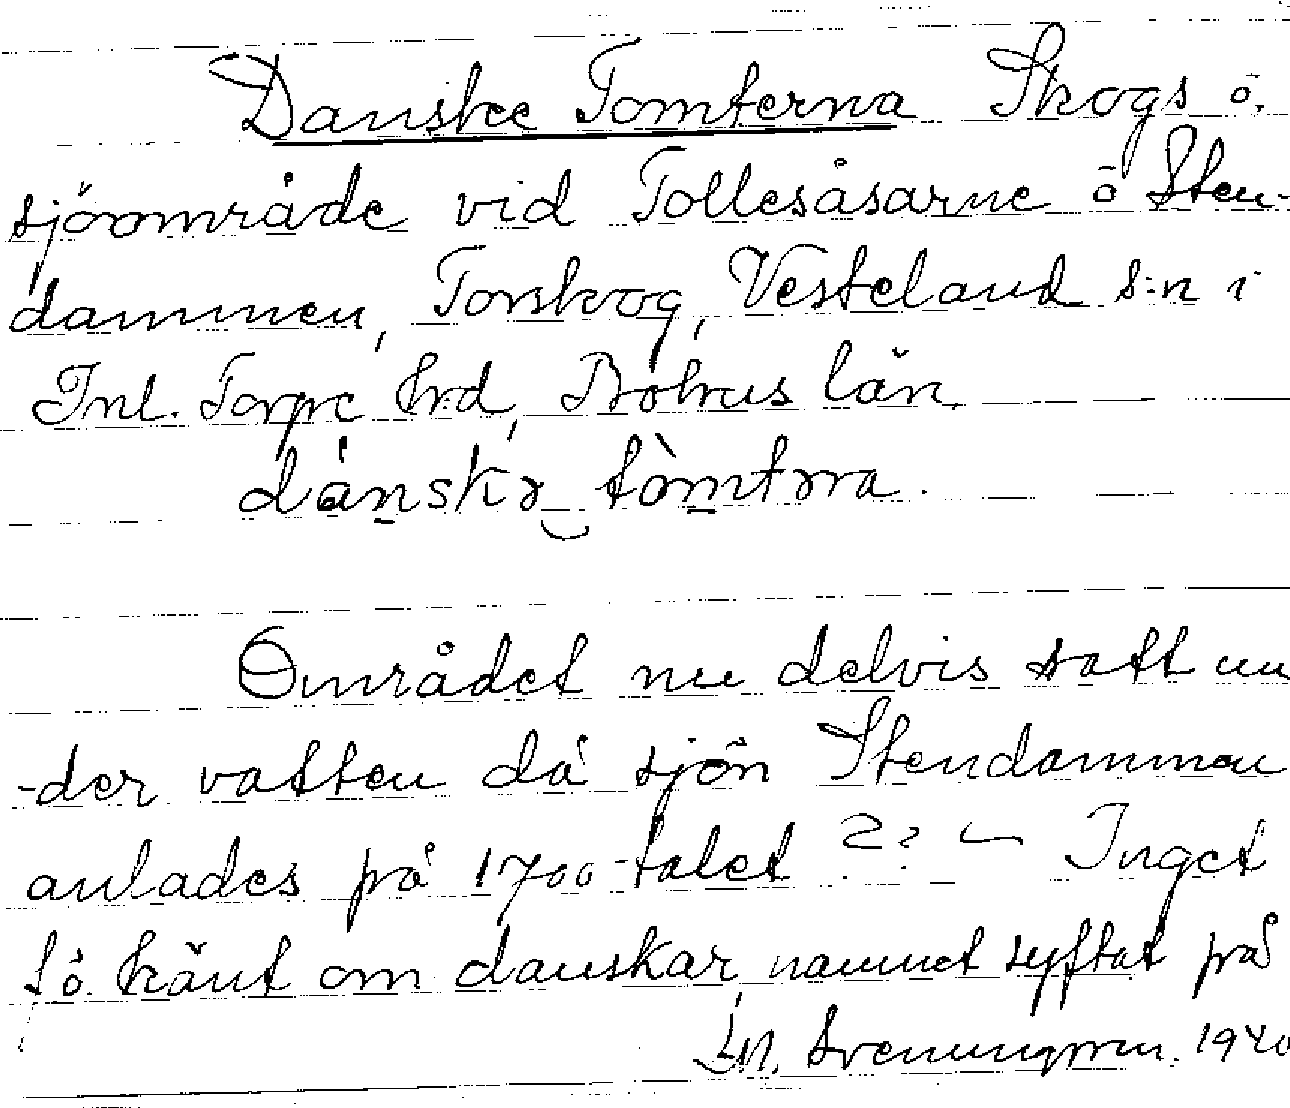 Danske Tomterna Skogs o.
sjöområde vid Tollesåsarne o Sten-
dammen, Torskog, Vesteland s:n i
Inl. Torpe hrd, Bohus län.
dánskə tòmtəɳa.
Området nu delvis satt un
-der vatten då sjön Stendammen
anlades på 1700-talet ?? — Inget
f ö. känt om danskar, namnet syftat på
Svenungsson. 1940